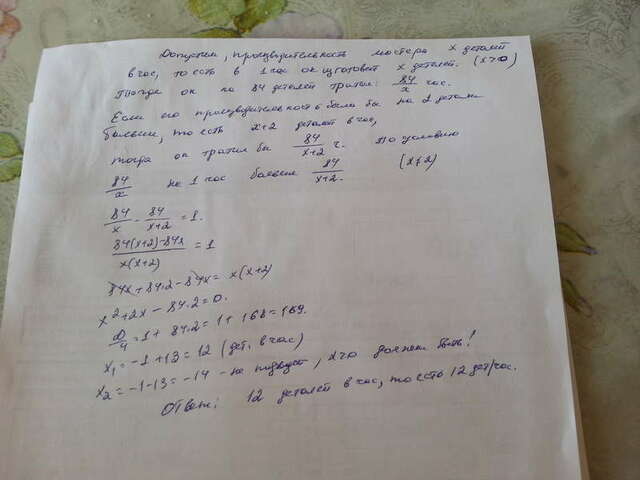 Допустим, производительность мастера x деталей
в час, то есть в 1 час он изготовит x деталей. (x>0)
Тогда он на 84 деталей тратил: 84/x час.
Если его производительность была бы на 2 детали
больше, то есть x+2 деталей в час,
тогда он тратил бы 84/x+2 ч. По условию
84/x на 1 час больше 84/x+2. (x≠2)
84/x - 84/x+2 = 1.
84(x+2)-84x/x(x+2) = 1
84x+84·2-84x = x(x+2)
x²+2x-84·2=0.
D/4=1+84·2=1+168=169.
x₁=-1+13=12 (дет. в час)
x₂=-1-13=-14 - не подходит, x>0 должен быть!
Ответ: 12 деталей в час, то есть 12 дет/час.